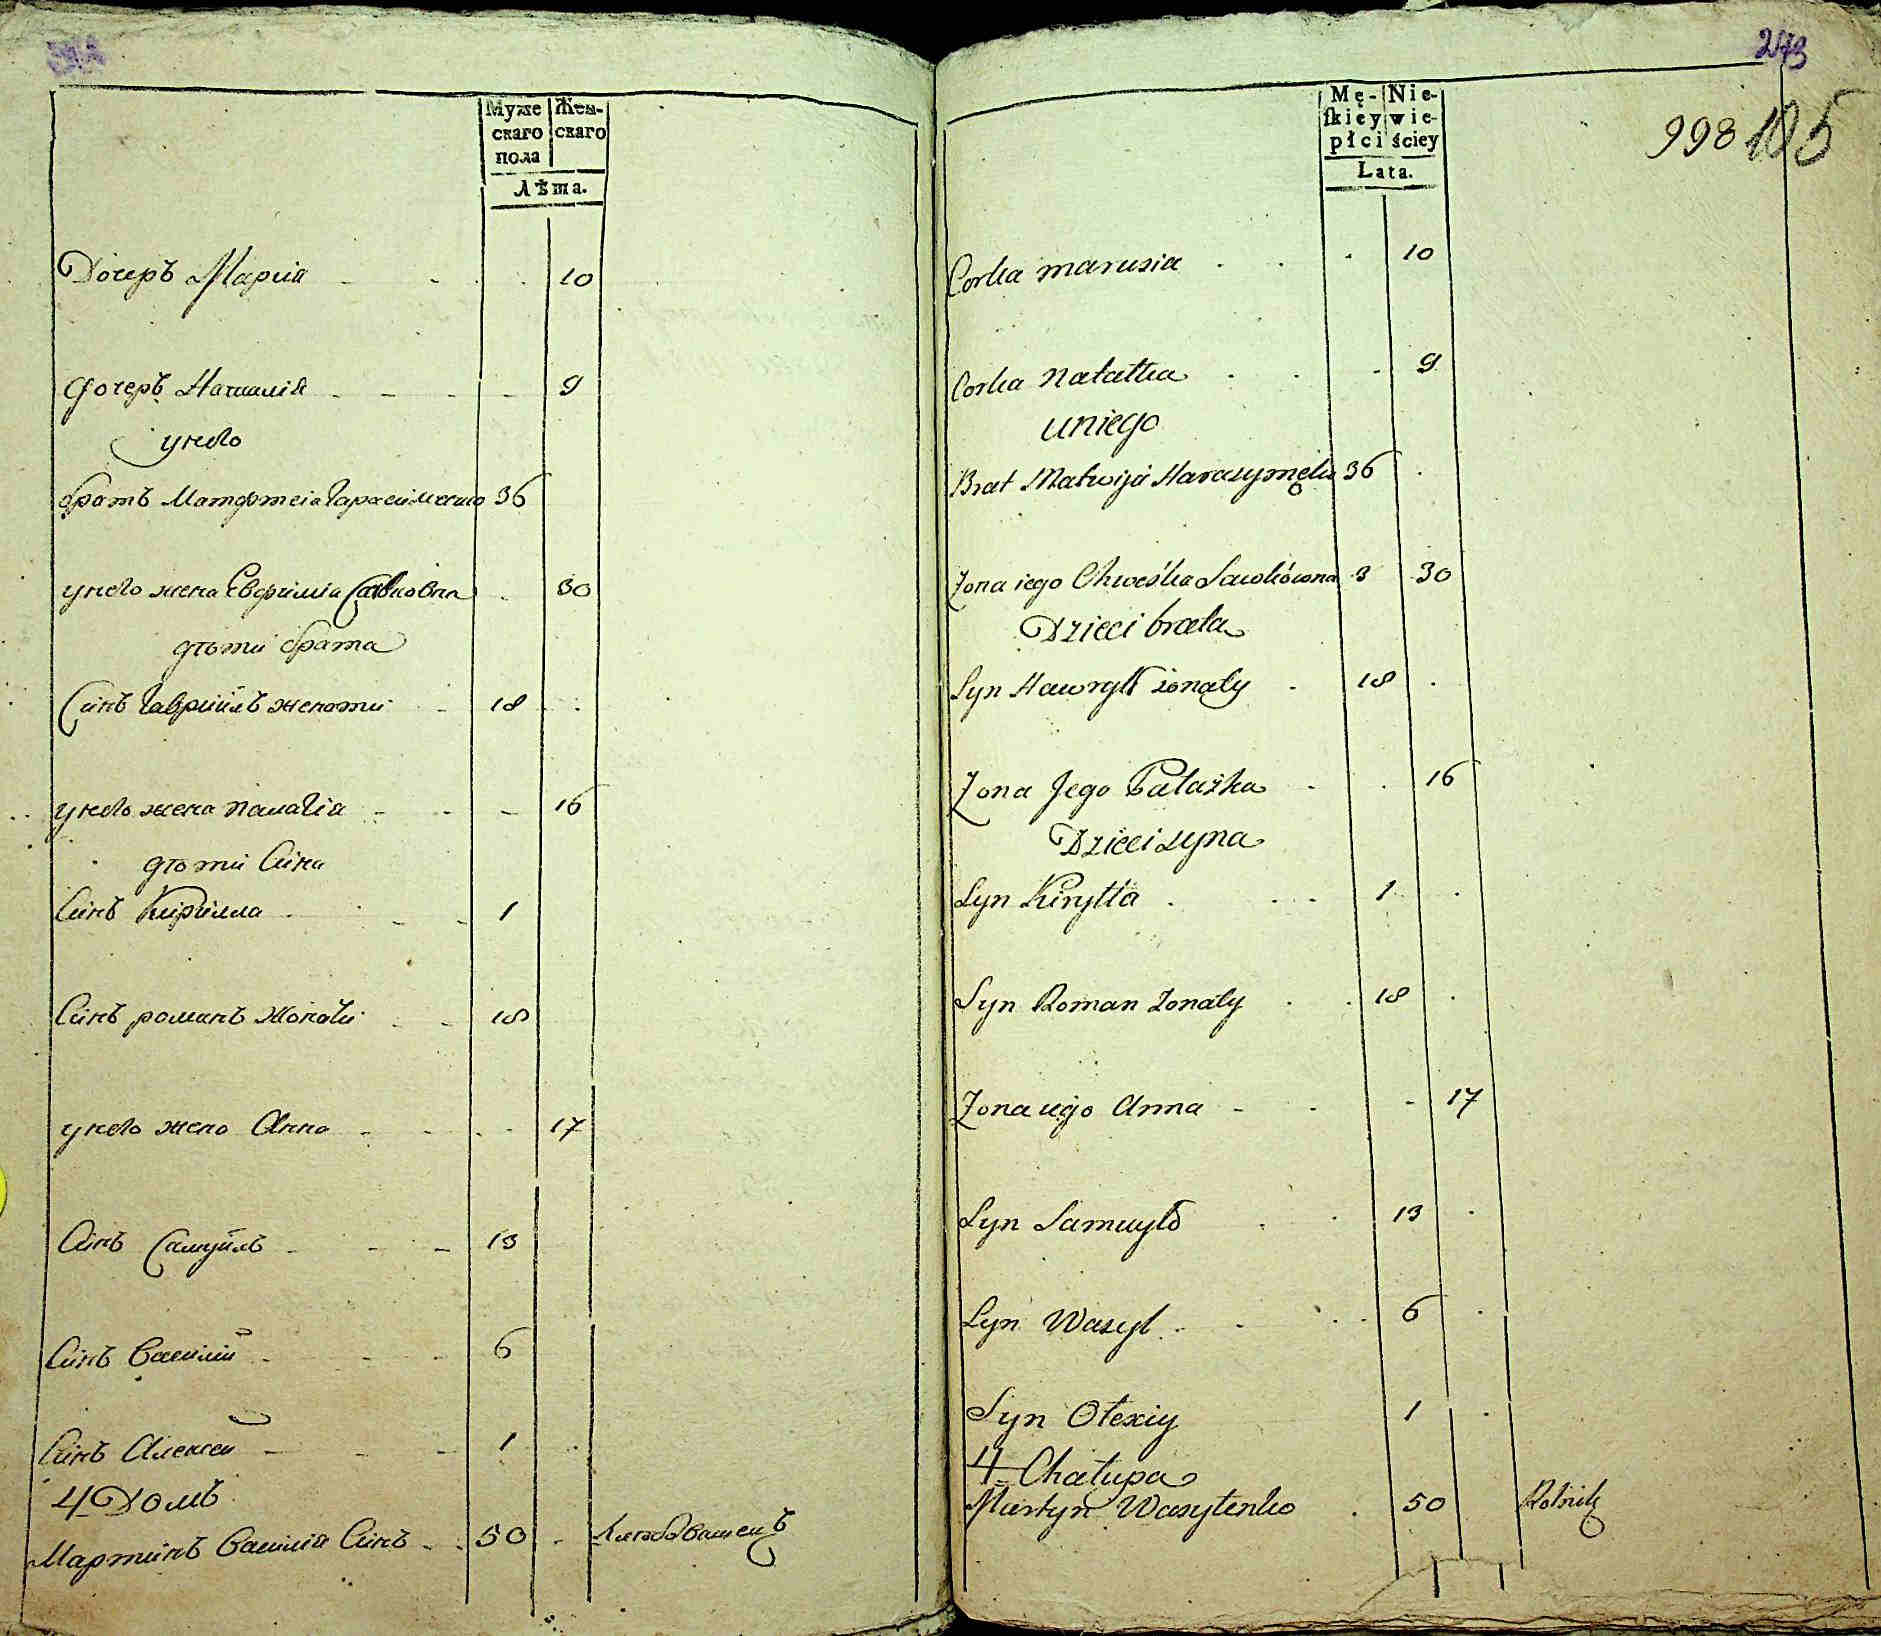 Муже
скаго
пола
Жен-
скаго
Лѣта.
Дочеръ Мария 10
дочеръ Наталія 9
унего
братъ Матфтеіа Гарасимеико 36
унего жена Евфимія Савковна 30
дѣти брата
Синъ Гавриилъ женати 18
унего жена Палагія 16
дѣти Сина
Синъ Кирилла 1
Синъ романъ Жонати 18
унего жена Анна 17
Синъ Самуилъ 13
Синъ Василий 6
Синъ Алексей 1
4 Домъ
Мартинъ Василія Синъ 50 Хлебопашецъ
243
998 105
Mę-
skiey
płci
Nie-
wie-
ściey
Lata.
Corka marusia 10
Corka Natałka 9
uniego
Brat Matwiy Harasymęko 36
Zona iego Chweśka Sawkówna 3 30
Dzieci brata
Syn Hawryło żonaty 18
Zona Jego Pałażka 16
Dzieci syna
Syn Kiryłło 1
Syn Roman Zonaty 18
Zona iego Anna 17
Syn Samuyło 13
Syn Wasyl 6
Syn Ołexiy 1
4 Chałupa
Martyn Wasylenko 50 Rolnik